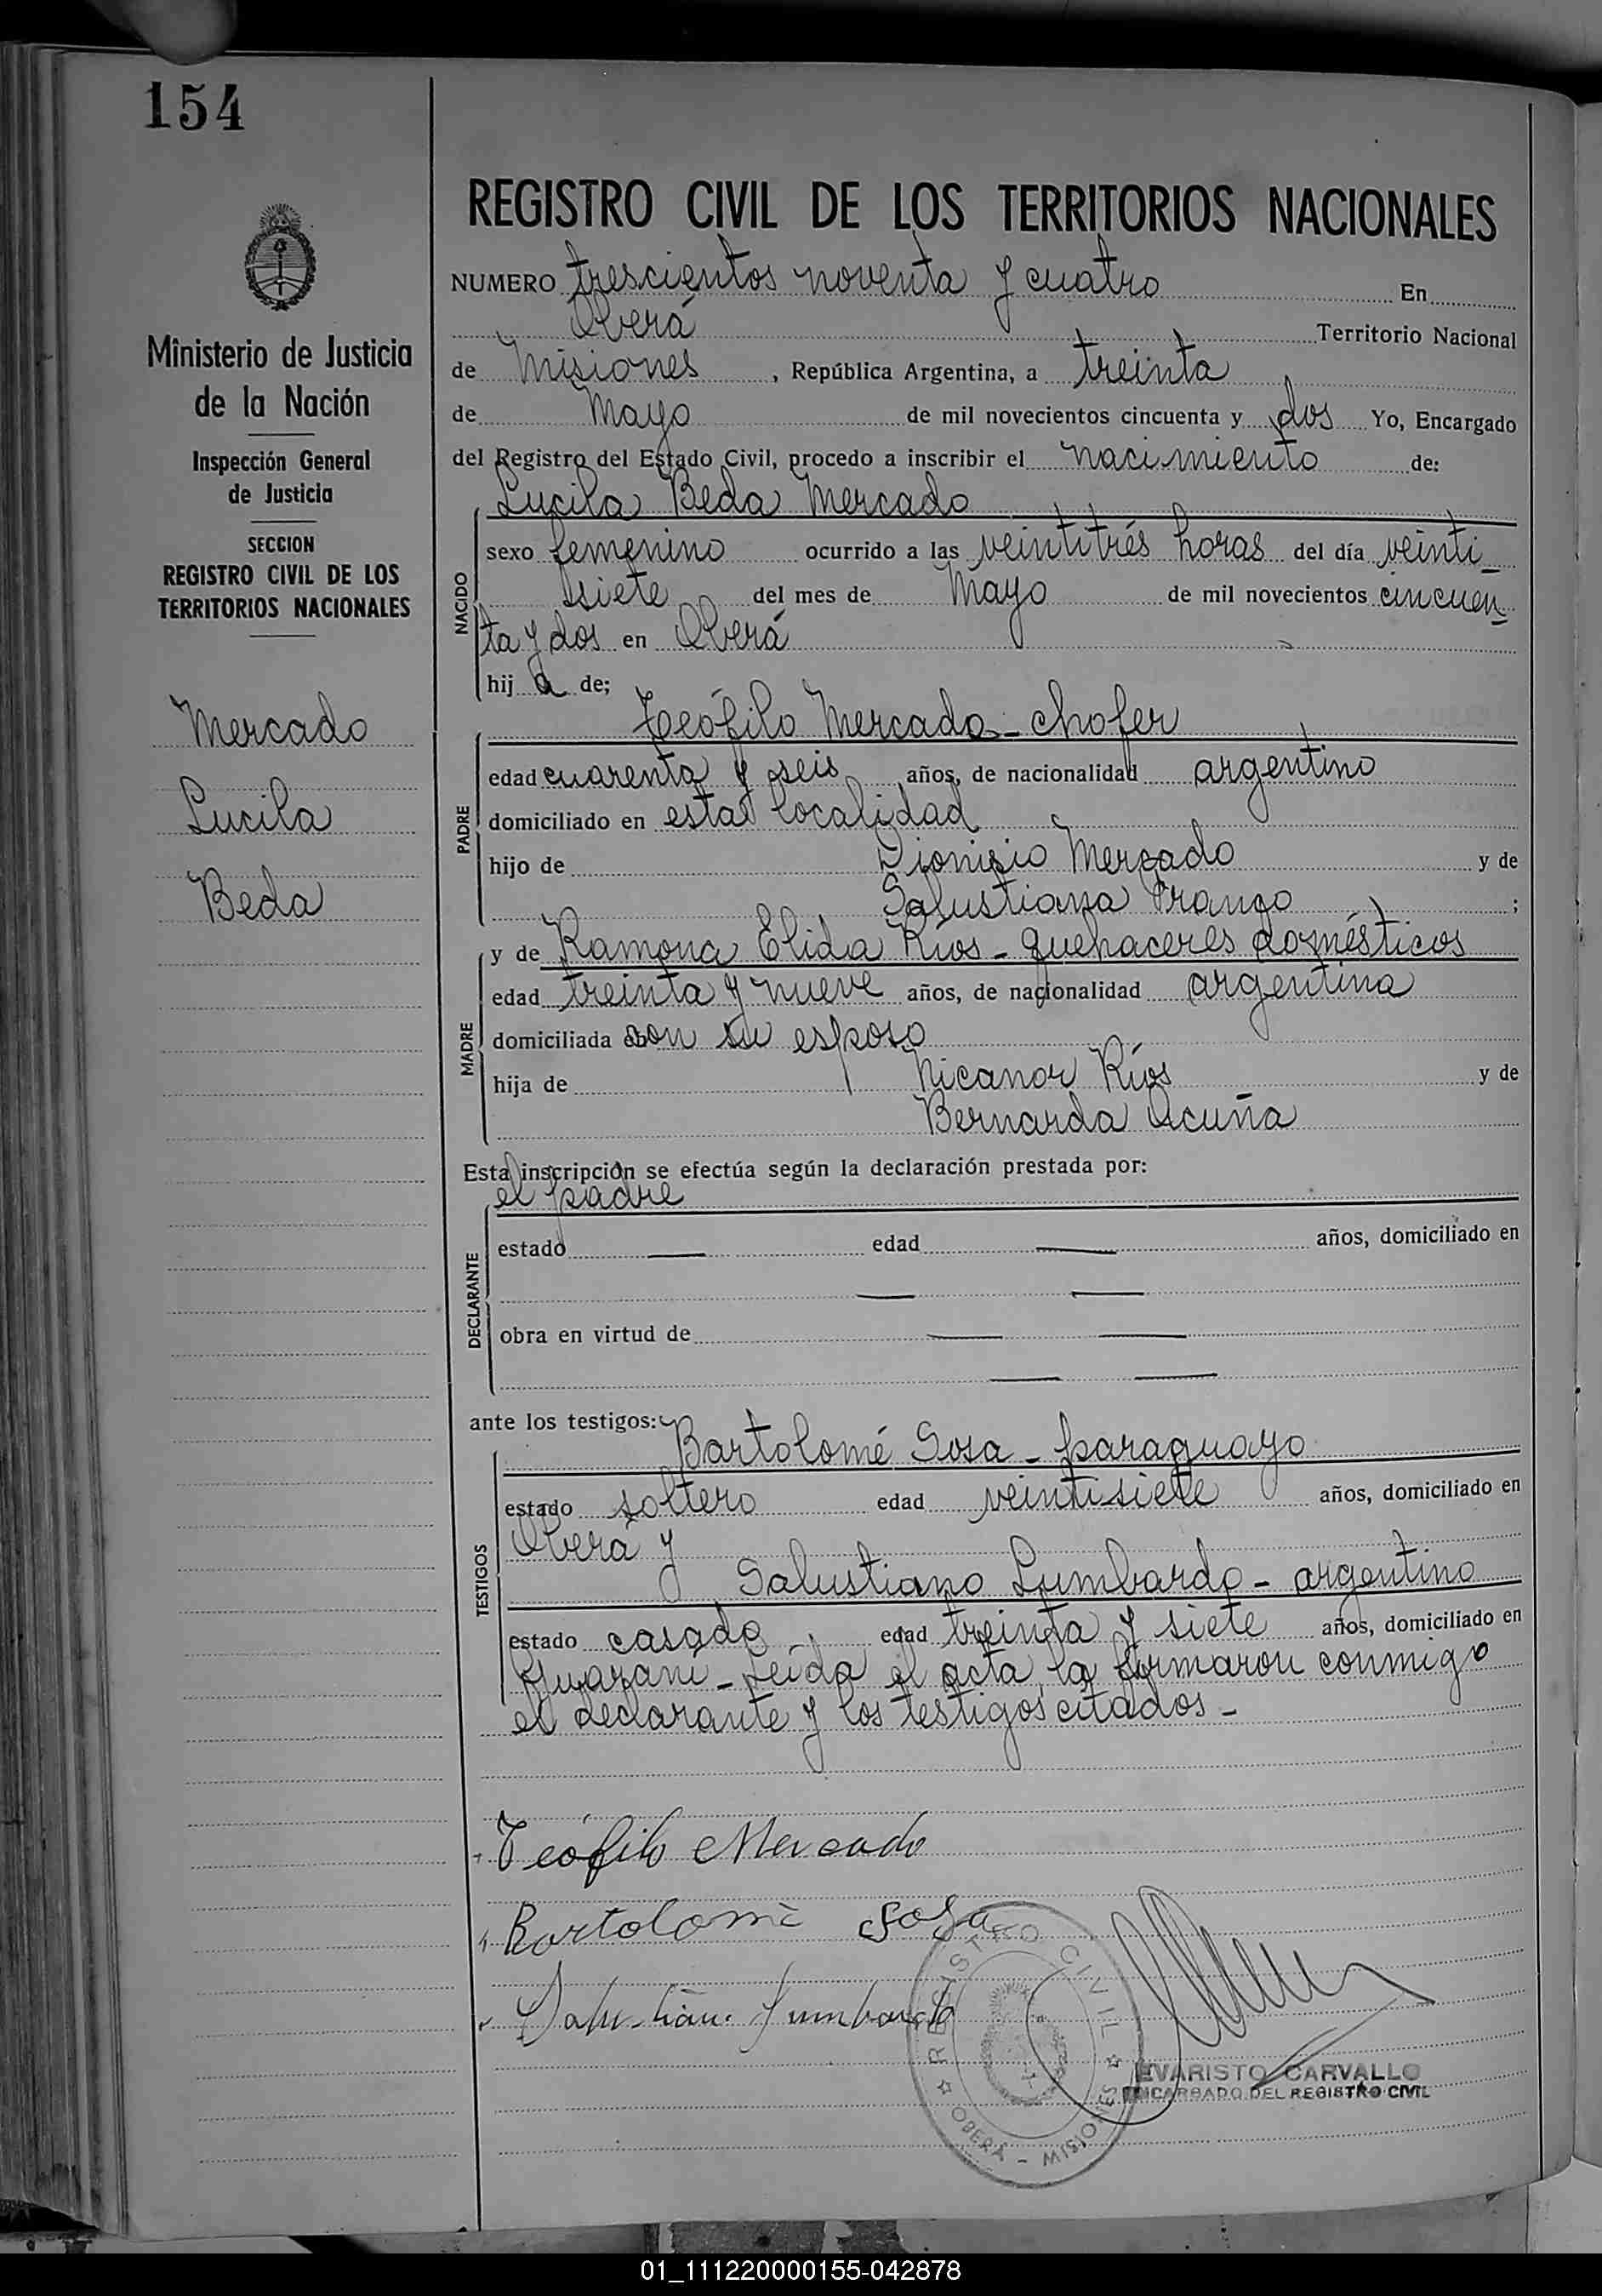 154
Ministerio de Justicia
de la Nación
Inspección General
de Justicia
SECCION
REGISTRO CIVIL DE LOS
TERRITORIOS NACIONALES
Mercado
Lucila
Beda
REGISTRO CIVIL DE LOS TERRITORIOS NACIONALES
NUMERO trescientos noventa y cuatro En
Oberá Territorio Nacional
de Misiones, República Argentina, a treinta
de Mayo de mil novecientos cincuenta y dos Yo, Encargado
del Registro del Estado Civil, procedo a inscribir el nacimiento de:
Lucila Beda Mercado
NACIDO
sexo femenino ocurrido a las veintitrés horas del día veinti_
siete del mes de Mayo de mil novecientos cincuen_
ta y dos en Oberá
hij a de;
Teófilo Mercado - chofer
PADRE
edad cuarenta y seis años, de nacionalidad argentino
domiciliado en esta localidad
hijo de Dionisio Mercado y de
Salustiana ;
MADRE
y de Ramona Elida Ríos - quehaceres domésticos
edad treinta y nueve años, de nacionalidad argentina
domiciliada con su esposo
hija de Nicanor Ríos y de
Bernarda Acuña
Esta inscripción se efectúa según la declaración prestada por:
el padre
DECLARANTE
estado — edad — años, domiciliado en
— —
obra en virtud de — —
— —
ante los testigos:
Bartolomé Sosa - paraguayo
TESTIGOS
estado soltero edad veintisiete años, domiciliado en
Oberá y
Salustiano Lumbardo - argentino
estado casado edad treinta y siete años, domiciliado en
Guaraní - Leída el acta, la firmaron conmigo
el declarante y los testigos citados -
Teófilo Mercado
Bartolomé Sosa
Salustiano Lumbardo
REGISTRO CIVIL
OBERÁ - MISIONES
EVARISTO CARVALLO
ENCARGADO DEL REGISTRO CIVIL
01_111220000155-042878